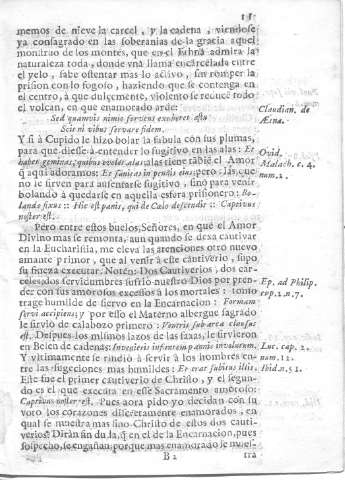 11
memos de nieve la carcel, y la cadena, viendose
ya consagrado en las soberanias de la gracia aquel
monstruo de los montes, que en el Ethna admira la
naturaleza toda, donde vna llama encarcelada entre
el yelo, sabe ostentar mas lo activo, sin romper la
prision con lo fogoso, haziendo que se contenga en
el centro, à que dulçemente, violento se reduce todo
el volcan, en que enamorado arde:
Sed quamvis nimio fervens exuberet æstu
Scit nivibus servare fidem.
Claudian. de
Æina.
Y si à Cupido le hizo bolar la fabula con sus plumas,
para que diesse à entender lo fugitivo en las alas: Et
habet geminas, quibus evolet alas: alas tiene tābiē el Amor
q̄ aqui adoramos: Et sanitas in pennis eius; pero: las que
no le sirven para ausentarse fugitivo, sino para venir
bolando à quedarse en aquella esfera prisionero: Bo-
lando fixus :: Hic est panis, qui de Cœlo descendit :: Captivus
noster est.
Ovid.
Malach. c. 4.
num. 2.
Pero entre estos buelos, Señores, en que el Amor
Divino mas se remonta, aun quando se dexa cautivar
en la Eucharistia, me eleva las atenciones otro nuevo
amante primor, que al venir à este cautiverio, supo
su fineza executar. Noten: Dos Cautiverios, dos car-
celes, dos servidumbres sufriò nuestro Dios por pren-
der con sus amorosos excessos à los mortales: tomò
trage humilde de siervo en la Encarnacion: Formam
servi accipiens; y por esso el Materno albergue sagrado
le sirviò de calabozo primero: Ventris sub arca clausus
est. Despues los mismos lazos de las faxas, le sirvieron
en Belen de cadenas: Invenietis infantem pannis involutum.
Y vltimamente se rindiò à servir à los hombres en-
tre las sugeciones mas humildes: Et erat subitus illis.
Ep. ad Philip.
cap. 2. n. 7.
Luc. cap. 2.
num. 12.
Ibid. n. 51.
Este fue el primer cautiverio de Christo, y el segun-
do es el que executa en esse Sacramento amoroso:
Captivus noster est. Pues aora pido yo decidan con su
voto los corazones discretamente enamorados, en
qual se muestra mas fino Christo de estos dos cauti-
verios? Diràn sin du la, q̄ en el de la Encarnacion, pues
sospecho, se engañan, porque mas enamorado le mues-
B 2
tra